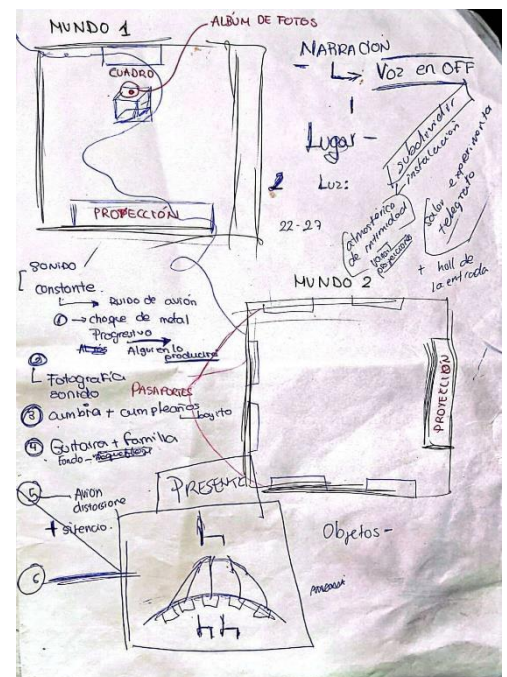 MUNDO 1
ALBÚM DE FOTOS
CUADRO
PROYECCIÓN
NARRACIÓN
Voz en OFF
Lugar -
subdividir
instalación
Luz:
22-27
atmosférico
de intimidad
salor experimenta
telegrafo
+ hall de
la entrada
SONIDO
constante.
Ruido de avión
① → choque de metal
Progresivo
Alguien lo
producira
②
Fotografia
sonido
③ cumbia + cumpleaños
bajito
④ Guitarra + familia
fondo -
⑤ - Avion
distorsione
+ silencio.
⑥
MUNDO 2
PASAPORTES
PROYECCIÓN
PRESENTE
Objetos -